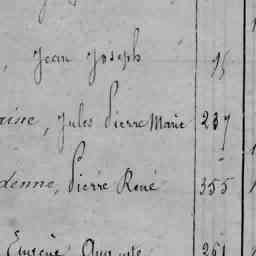 , Jean Joseph 15
aise, Jules Pierre Marie 237
denne, Pierre René 355
Eugène Auguste 251